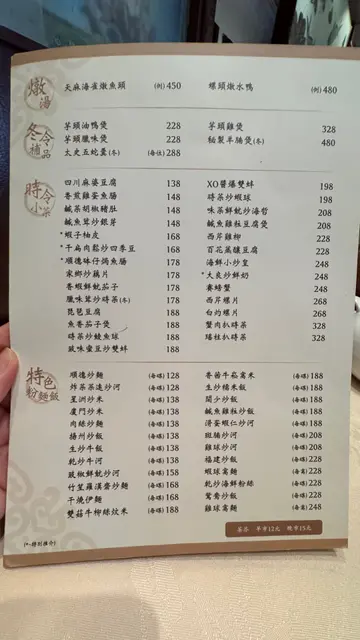 燉湯
天麻海雀燉魚頭 (例) 450
螺頭燉水鴨 (例) 480
冬令補品
芋頭油鴨煲 228
芋頭臘味煲 228
太史五蛇羹(冬) (每位) 288
芋頭雞煲 328
秘製羊腩煲(冬) 480
時令小菜
四川麻婆豆腐 138
香煎雞蛋魚腸 148
鹹菜胡椒豬肚 148
鹹魚茸炒銀芽 148
*蝦子柚皮 168
*干扁肉鬆炒四季豆 168
*順德砵仔焗魚腸 178
家鄉炒藕片 178
香蝦鮮魷茄子 178
臘味茸炒時菜(冬) 178
琵琶豆腐 188
魚香茄子煲 188
時菜炒鯪魚球 188
豉味蜜豆炒雙蚌 188
XO醬爆雙蚌 198
時菜炒蝦球 198
味菜鮮魷炒海哲 208
鹹魚雞粒豆腐煲 208
西芹雞柳 228
百花蒸釀豆腐 228
海鮮小炒皇 248
*大良炒鮮奶 248
賽螃蟹 248
西芹螺片 268
白灼螺片 268
蟹肉扒時菜 328
瑤柱扒時菜 328
特色粉麵飯
順德炒麵 (每碟) 128
炸菜茶邊炒河 (每碟) 128
星洲炒米 (每碟) 138
廈門炒米 (每碟) 138
肉絲炒麵 (每碟) 138
揚州炒飯 (每碟) 138
生炒牛飯 (每碟) 138
乾炒牛河 (每碟) 138
豉椒鮮魷炒河 (每碟) 158
竹笙羅漢齋炒麵 (每碟) 168
干燒伊麵 (每碟) 168
雙菇牛柳絲炆米 (每碟) 188
香茜牛崧窩米 (每碟) 188
生炒糯米飯 (每碟) 188
闍少炒飯 (每碟) 188
鹹魚雞粒炒飯 (每碟) 188
滑蛋蝦仁炒河 (每碟) 188
斑腩炒河 (每碟) 208
雞球炒河 (每碟) 208
福建炒飯 (每碟) 228
蝦球窩麵 (每窩) 228
乾炒海鮮粉絲 (每碟) 228
鴛鴦炒飯 (每碟) 228
雞球窩麵 (每窩) 248
茶芥 早市12元 晚市15元
(*-特別推介)